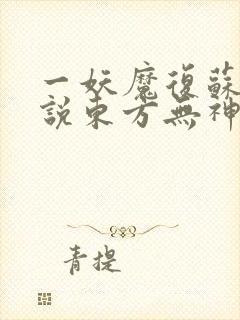 一妖魔復蘇
説東方無神
青提